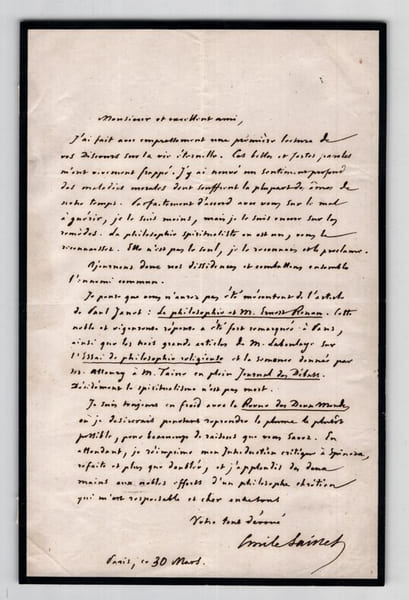 Monsieur et excellent ami,
J'ai fait avec empressement une première lecture de
vos Discours sur la vie éternelle. Ces belles et fortes paroles
m'ont vivement frappé. J'y ai trouvé un sentiment profond
des maladies morales dont souffrent la plupart des âmes de
notre temps. Parfaitement d'accord avec vous sur le mal
à guérir, je le suis moins, mais je le suis encore sur les
remèdes. La philosophie spiritualiste en est un, vous le
reconnaissez. Elle n'est pas le seul, je le reconnais et le proclame.
Ajournons donc nos dissidences et combattons ensemble
l'ennemi commun.
Je pense que vous n'aurez pas été mécontent de l'article
de Paul Janet : La philosophie et M. Ernest Renan. Cette
noble et vigoureuse réponse a été fort remarquée à Paris,
ainsi que les trois grands articles de M. Laboulaye sur
l'Essai de philosophie religieuse et la semonce donnée par
M. à M. Taine en plein Journal des Débats.
Décidément le spiritualisme n'est pas mort.
Je suis toujours en froid avec la Revue des Deux Mondes
où je désirerais pourtant reprendre la plume le plutôt
possible, pour beaucoup de raisons que vous savez. En
attendant, je réimprime mon Introduction critique à Spinoza,
refaite et plus que doublée, et j'applaudis des deux
mains aux nobles efforts d'un philosophe chrétien
qui m'est respectable et cher entre tous
Votre tout dévoué
Emile Saisset
Paris, ce 30 Mars.